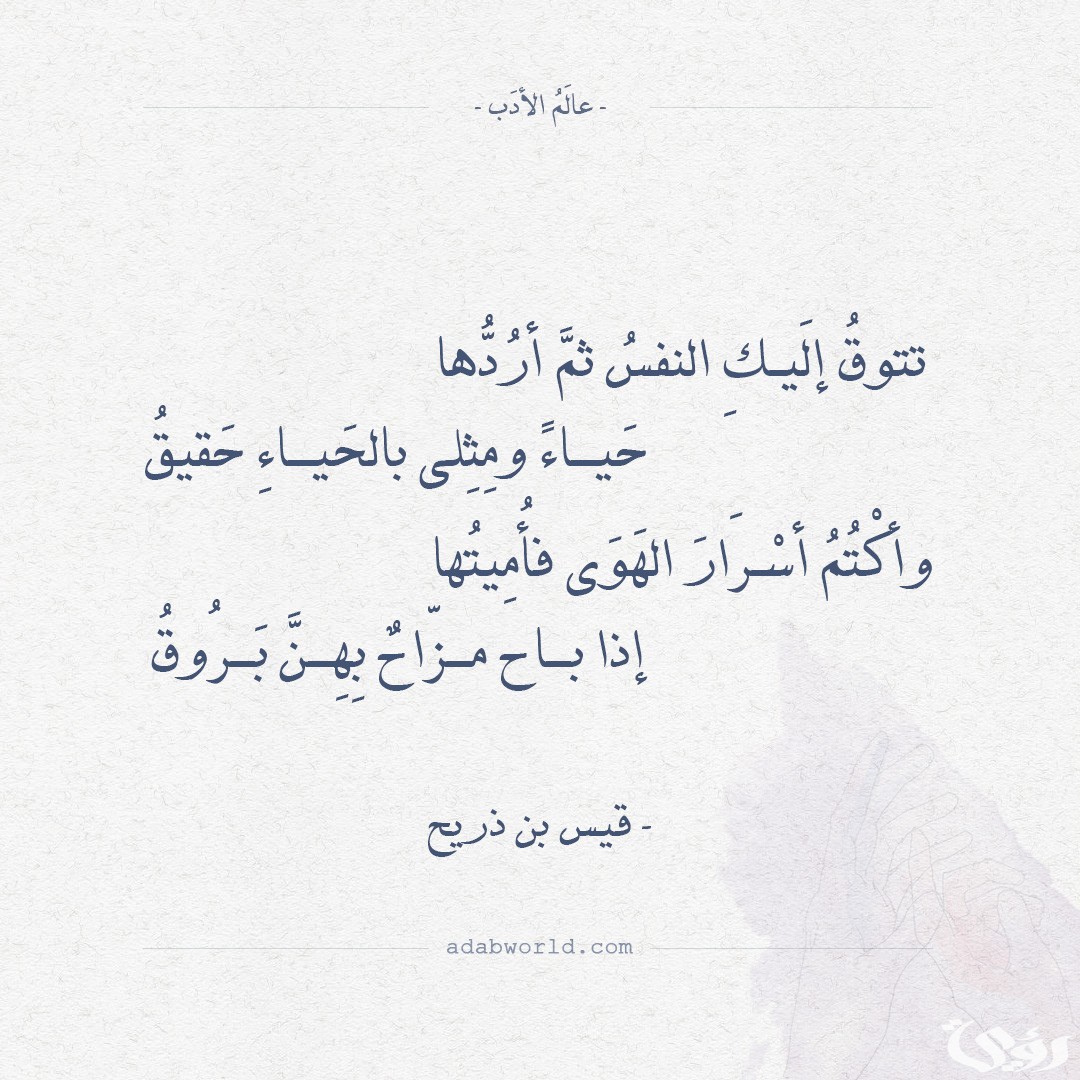 - عالَمُ الأدَب -
تتوقُ إلَيـكِ النفسُ ثمَّ أرُدُّها
حَيـــاءً ومِثِلى بالحَيـــاءِ حَقيقُ
وأكْتُمُ أسْـرَارَ الهَوَى فأُمِيتُها
إذا بــاح مــزّاحٌ بِهِــنَّ بَــرُوقُ
- قيس بن ذريح
adabworld.com
رؤية